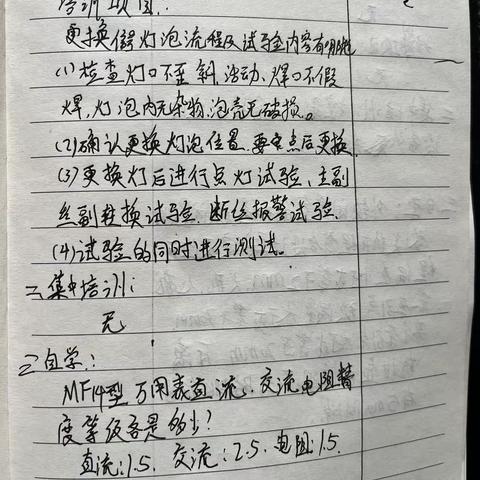 培训项目:
更换信灯泡流程及试验内容有哪些
(1)检查灯口不歪斜,活动、焊口不假
焊,灯泡内无杂物,泡壳无破损。
(2)确认更换灯泡位置,要点后更换
(3)更换灯后进行点灯试验、主副
丝转换试验,断丝报警试验.
(4)试验的同时进行测试。
二集中培训:
无
三自学:
MF14型万用表直流、交流电阻精
度等级各是多少?
直流:1.5、交流:2.5、电阻:1.5.